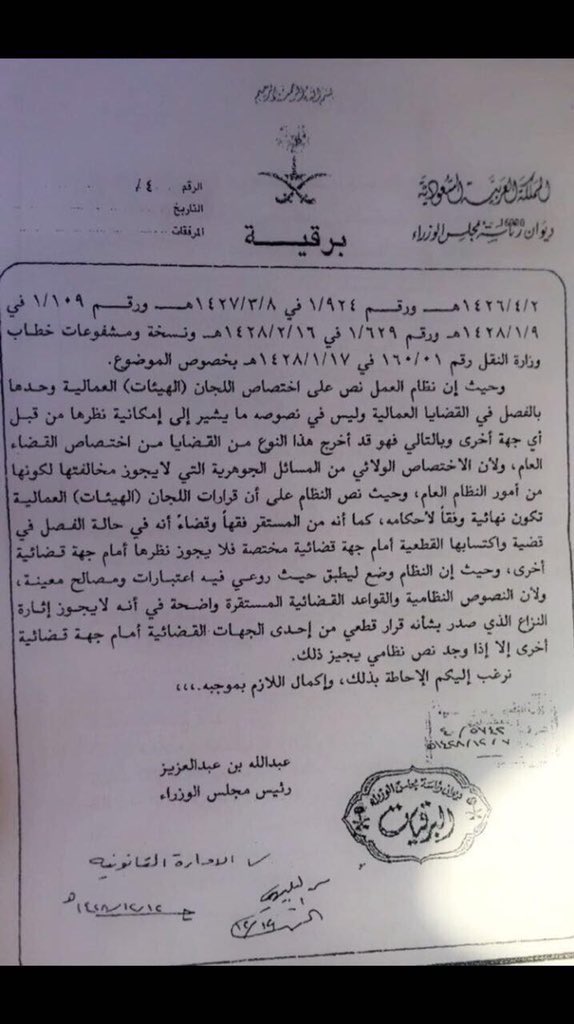 بسم الله الرحمن الرحيم
المملكة العربية السعودية
ديوان رئاسة مجلس الوزراء
الرقم ٤/
التاريخ
المرفقات
برقية
١٤٢٦/٤/٢هـ ورقم ١/٩٢٤ في ١٤٢٧/٣/٨هـ ورقم ١/١٠٩ في
١٤٢٨/١/٩هـ ورقم ١/٦٢٩ في ١٤٢٨/٢/١٦هـ ونسخة ومشفوعات خطاب
وزارة النقل رقم ١٦٠/٠١ في ١٤٢٨/١/١٧هـ بخصوص الموضوع.
وحيث إن نظام العمل نص على اختصاص اللجان (الهيئات) العمالية وحدها
بالفصل في القضايا العمالية وليس في نصوصه ما يشير إلى إمكانية نظرها من قبل
أي جهة أخرى وبالتالي فهو قد أخرج هذا النوع من القضايا من اختصاص القضاء
العام، ولأن الاختصاص الولائي من المسائل الجوهرية التي لايجوز مخالفتها لكونها
من أمور النظام العام، وحيث نص النظام على أن قرارات اللجان (الهيئات) العمالية
تكون نهائية وفقاً لأحكامه، كما أنه من المستقر فقهاً وقضاءً أنه في حالة الفصل في
قضية واكتسابها القطعية أمام جهة قضائية مختصة فلا يجوز نظرها أمام جهة قضائية
أخرى، وحيث إن النظام وضع ليطبق حيث روعي فيه اعتبارات ومصالح معينة،
ولأن النصوص النظامية والقواعد القضائية المستقرة واضحة في أنه لايجوز إثارة
النزاع الذي صدر بشأنه قرار قطعي من إحدى الجهات القضائية أمام جهة قضائية
أخرى إلا إذا وجد نص نظامي يجيز ذلك.
نرغب إليكم الإحاطة بذلك، وإكمال اللازم بموجبه،،،
عبدالله بن عبدالعزيز
رئيس مجلس الوزراء
ديوان رئاسة مجلس الوزراء
البرقيات
الادارة القانونية
١٤٢٨/١٢/١٢هـ